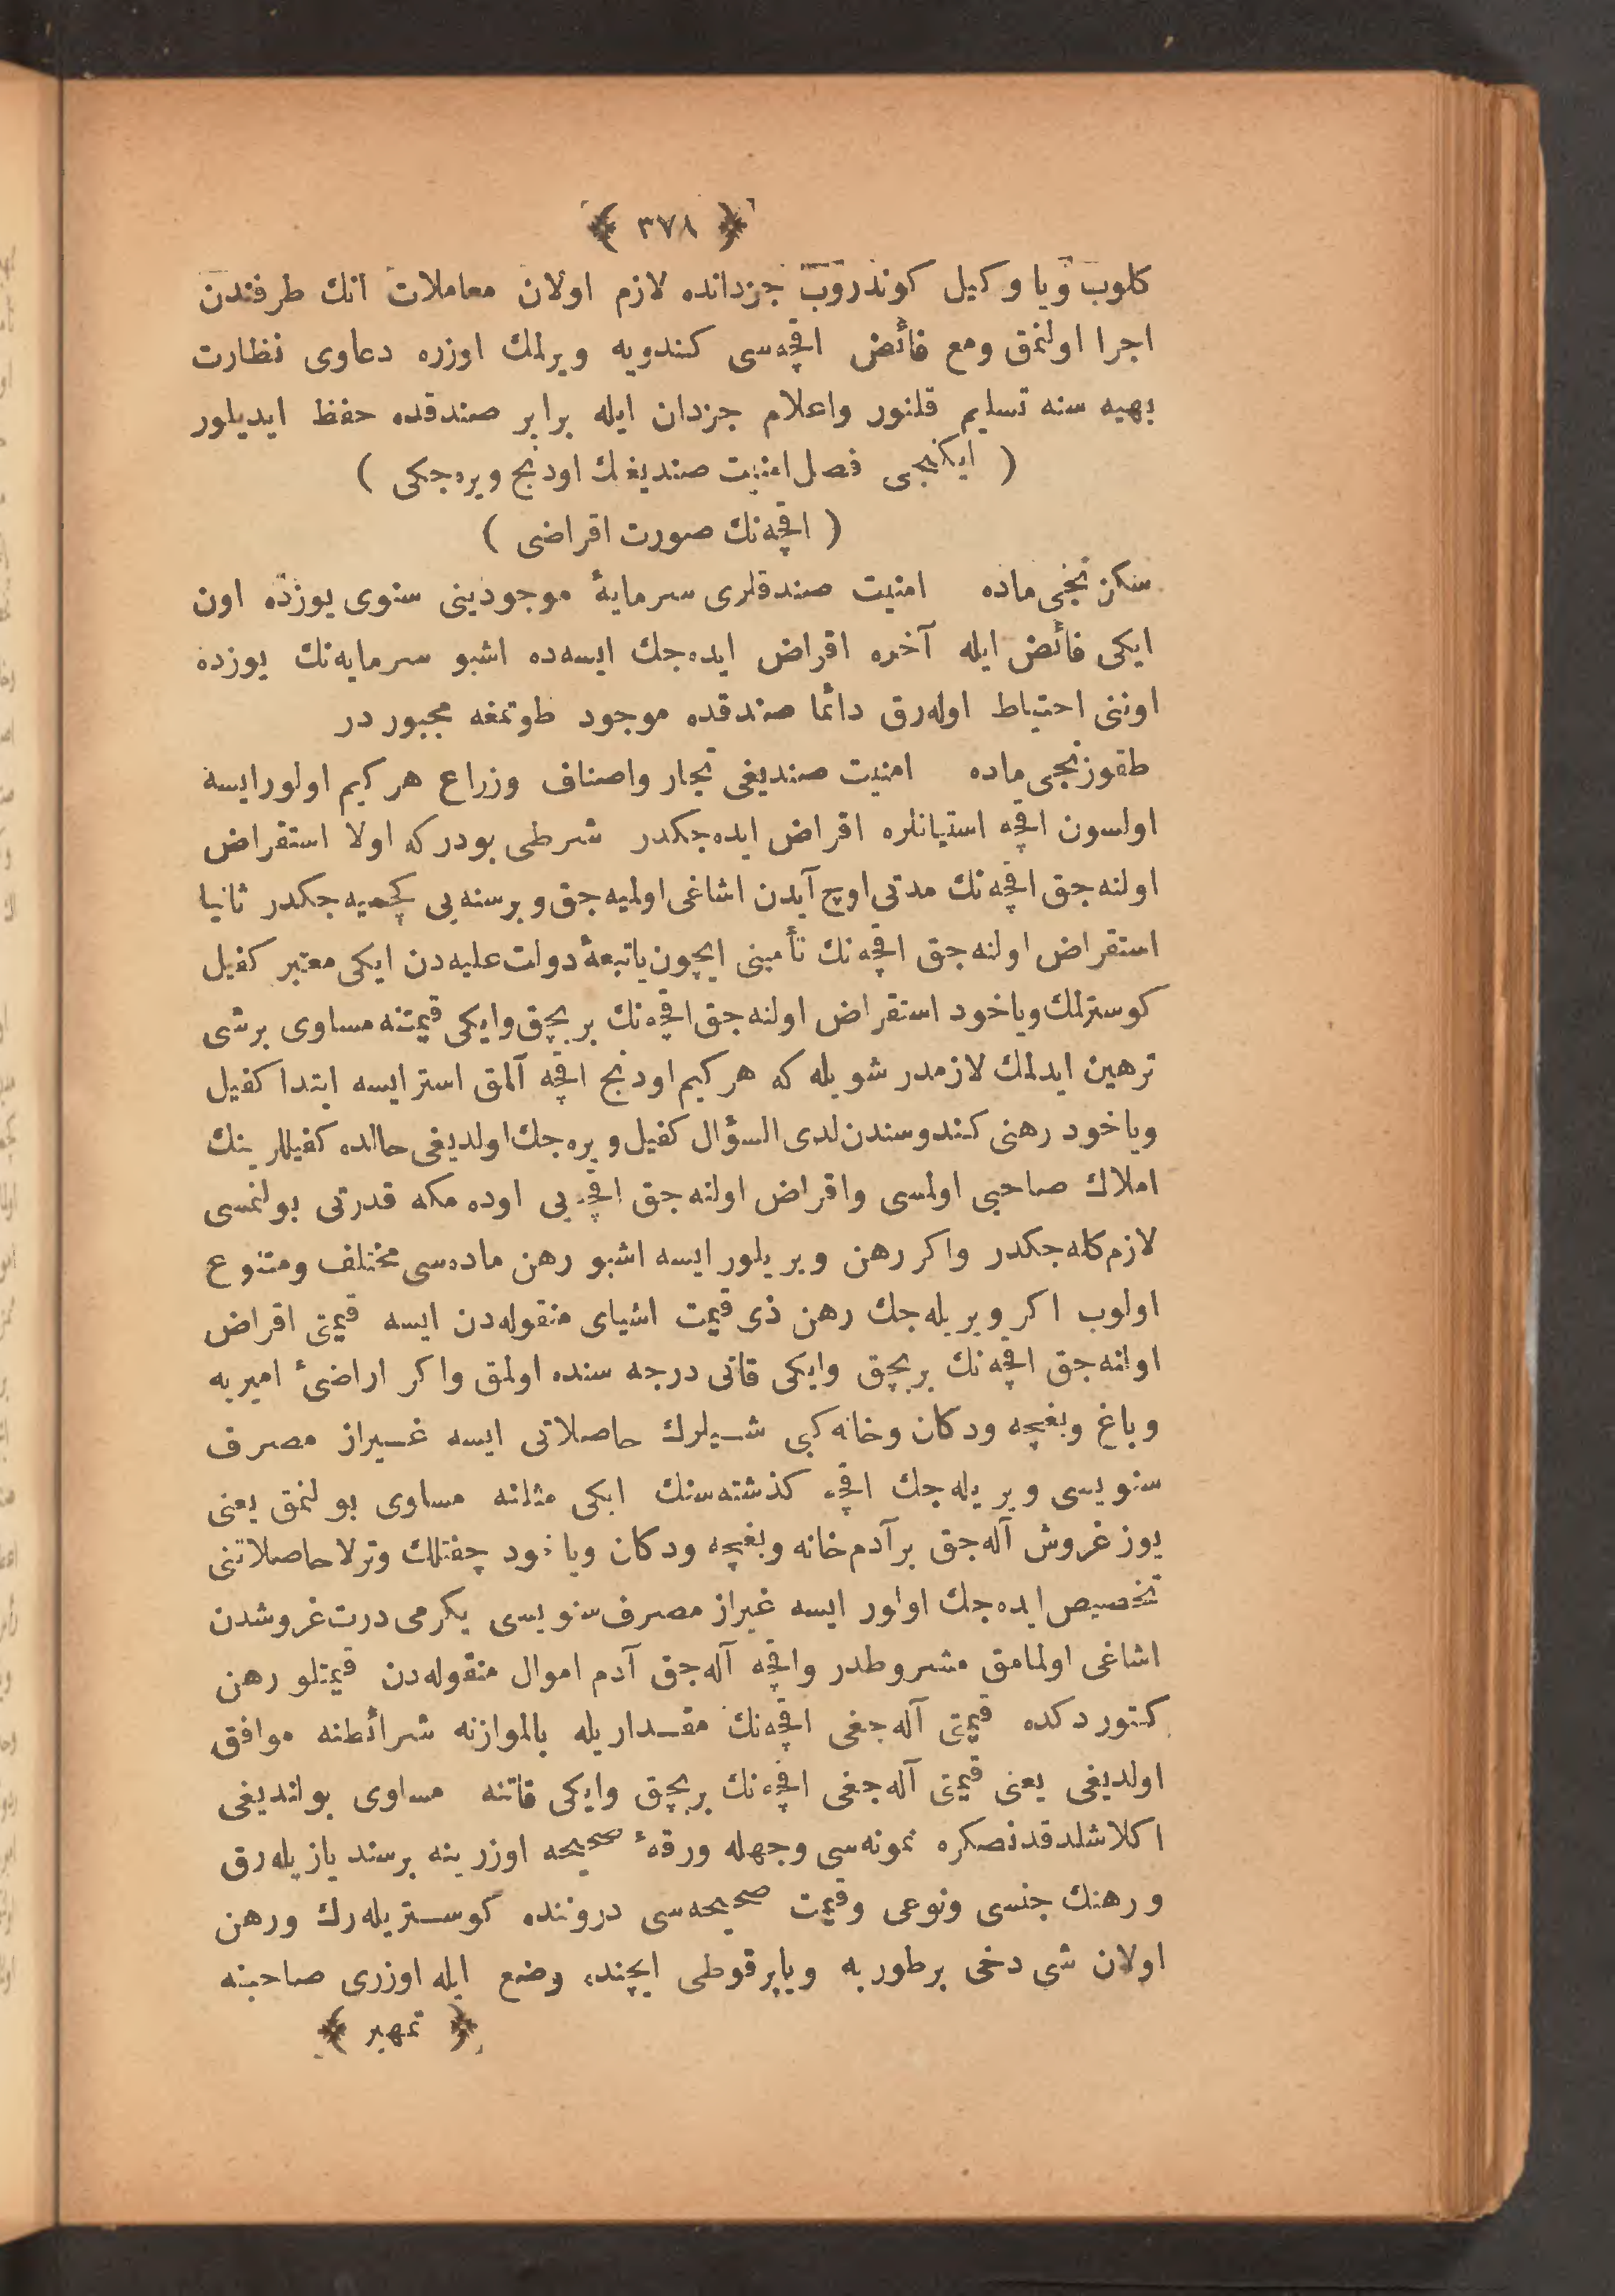 ﴿ ٣٧٨ ﴾
كلوب ويا وكيل كوندروب جزدانده لازم اولان معاملات انك طرفندن
اجرا اولنمق ومع فائض اقچه‌سی كندويه ويرلمك اوزره دعاوی نظارت
بهيه سنه تسليم قلنور واعلام جزدان ايله برابر صندقده حفظ ايديلور
( ايكنجی فصل امنيت صنديغك اودنج ويره‌جكی )
( اقچه‌نك صورت اقراضی )
سكزنجی ماده امنيت صندقلری سرمايهٔ موجودينی سنوی يوزده اون
ايكی فائض ايله آخره اقراض ايده‌جك ايسه‌ده اشبو سرمايه‌نك يوزده
اوننی احتياط اوله‌رق دائما صندقده موجود طوتمغه مجبور در
طقوزنجی ماده امنيت صنديغی تجار واصناف وزراع هر كيم اولورايسه
اولسون اقچه استيانلره اقراض ايده‌جكدر شرطی بودر كه اولا استقراض
اولنه‌جق اقچه‌نك مدتی اوچ آيدن اشاغی اولميه‌جق وبرسنه‌يی كچميه‌جكدر ثانيا
استقراض اولنه‌جق اقچه‌نك تأمينی ايچون ياتبعهٔ دولت عليه‌دن ايكی معتبر كفيل
كوسترلمك وياخود استقراض اولنه‌جق اقچه‌نك بر بچق وايكی قيمتنه مساوی برشی
ترهين ايدلمك لازمدر شويله كه هر كيم اودنج اقچه آلمق استر ايسه ابتدا كفيل
وياخود رهنی كندوسندن لدی السؤال كفيل ويره‌جك اولديغی حالده كفيللرينك
املاك صاحبی اولمسی واقراض اولنه‌جق اقچه‌يی اوده‌مكه قدرتی بولنمسی
لازم كله‌جكدر واكر رهن ويريلور ايسه اشبو رهن ماده‌سی مختلف ومتنوع
اولوب اكر ويريله‌جك رهن ذی قيمت اشيای منقوله‌دن ايسه قيمتی اقراض
اولنه‌جق اقچه‌نك بر بچق وايكی قاتی درجه سنده اولمق واكر اراضیٔ اميريه
وباغ وبغچه ودكان وخانه كبی شيلرك حاصلاتی ايسه غيراز مصرف
سنويسی ويريله‌جك اقچه كذشته‌سنك ايكی مثلنه مساوی بولنمق يعنی
يوز غروش آله‌جق برآدم خانه وبغچه ودكان وياخود چفتلك وترلا حاصلاتنی
تخصيص ايده‌جك اولور ايسه غيراز مصرف سنويسی يكرمی درت غروشدن
اشاغی اولمامق مشروطدر واقچه آله‌جق آدم اموال منقوله‌دن قيمتلو رهن
كتوردكده قيمتی آله‌جغی اقچه‌نك مقداريله بالموازنه شرائطنه موافق
اولديغی يعنی قيمتی آله‌جغی اقچه‌نك بر بچق وايكی قاتنه مساوی بولنديغی
اكلاشلدقدنصكره نمونه‌سی وجهله ورقهٔ صحيحه اوزرينه برسند يازيله‌رق
ورهنك جنسی ونوعی وقيمت صحيحه‌سی دروننده كوستريله‌رك ورهن
اولان شی دخی برطوربه ويابر قوطی ايچنده وضع ايله اوزری صاحبنه
﴿ تمهير ﴾